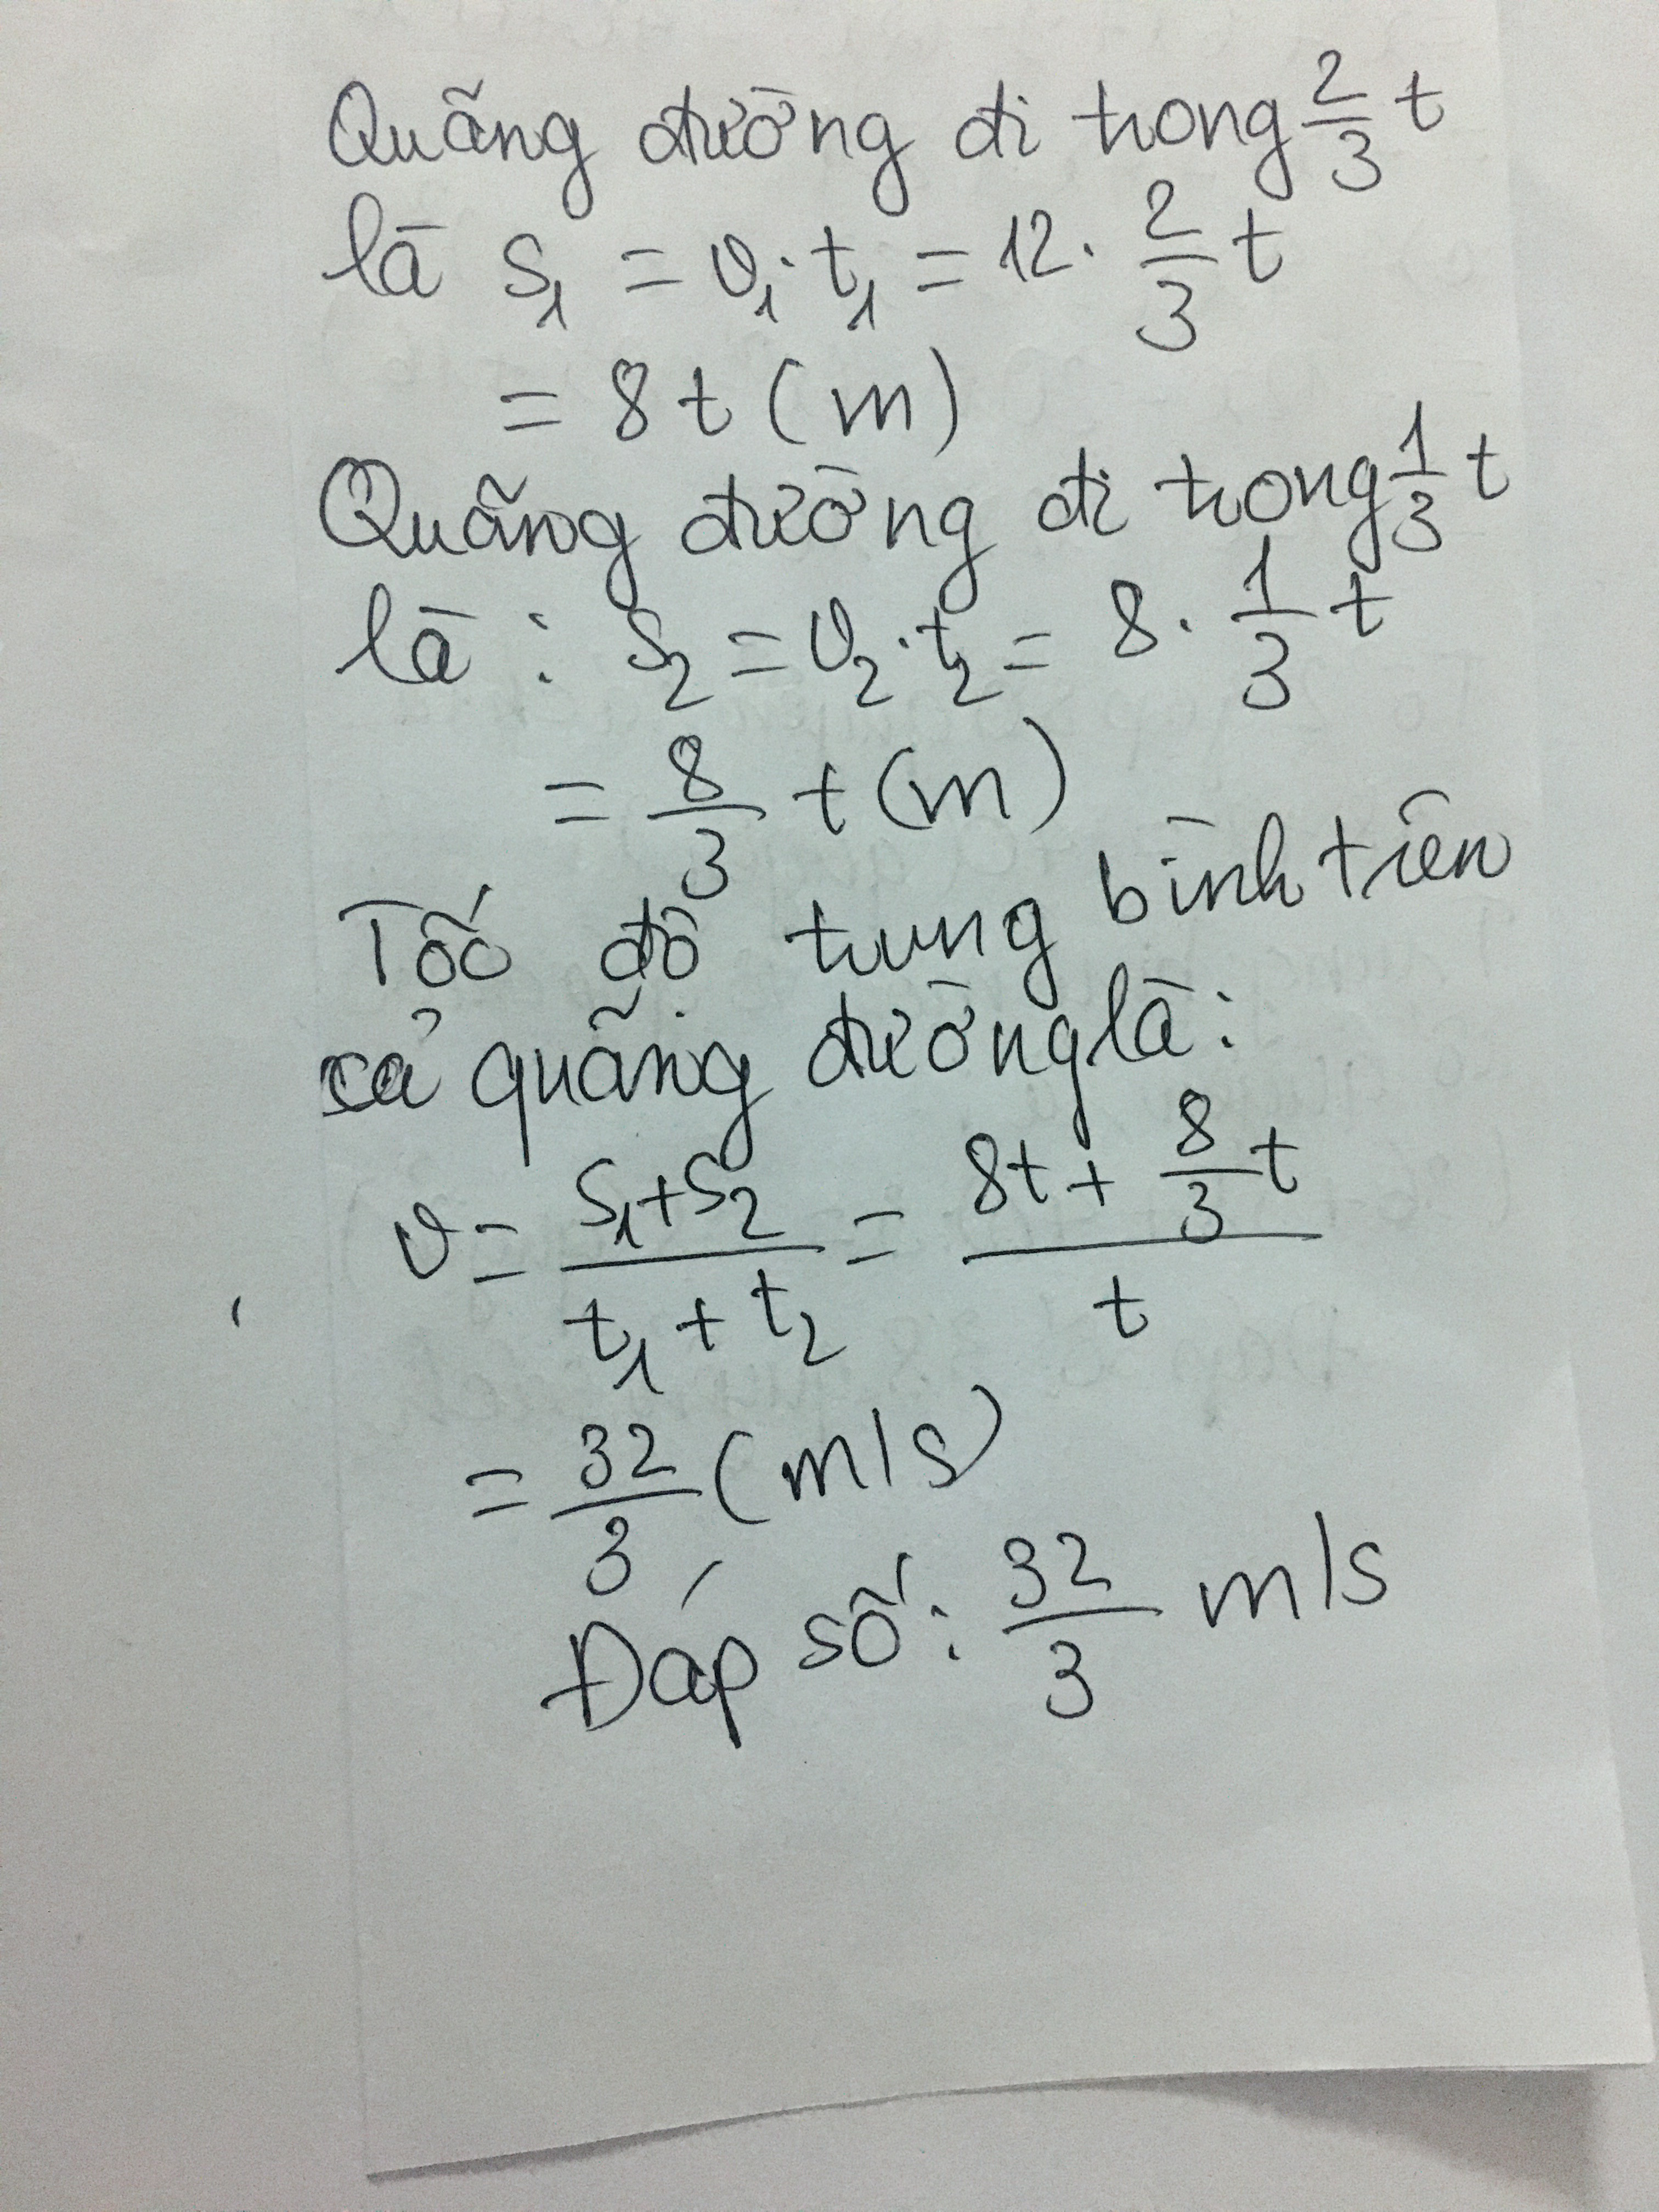 Quãng đường đi trong 2/3 t
là S₁ = v₁.t₁ = 12. 2/3 t
= 8t (m)
Quãng đường đi trong 1/3 t
là : S₂ = v₂.t₂ = 8. 1/3 t
= 8/3 t (m)
Tốc độ trung bình trên
cả quãng đường là:
v = (S₁+S₂)/(t₁+t₂) = (8t + 8/3 t)/t
= 32/3 (m/s)
Đáp số: 32/3 m/s